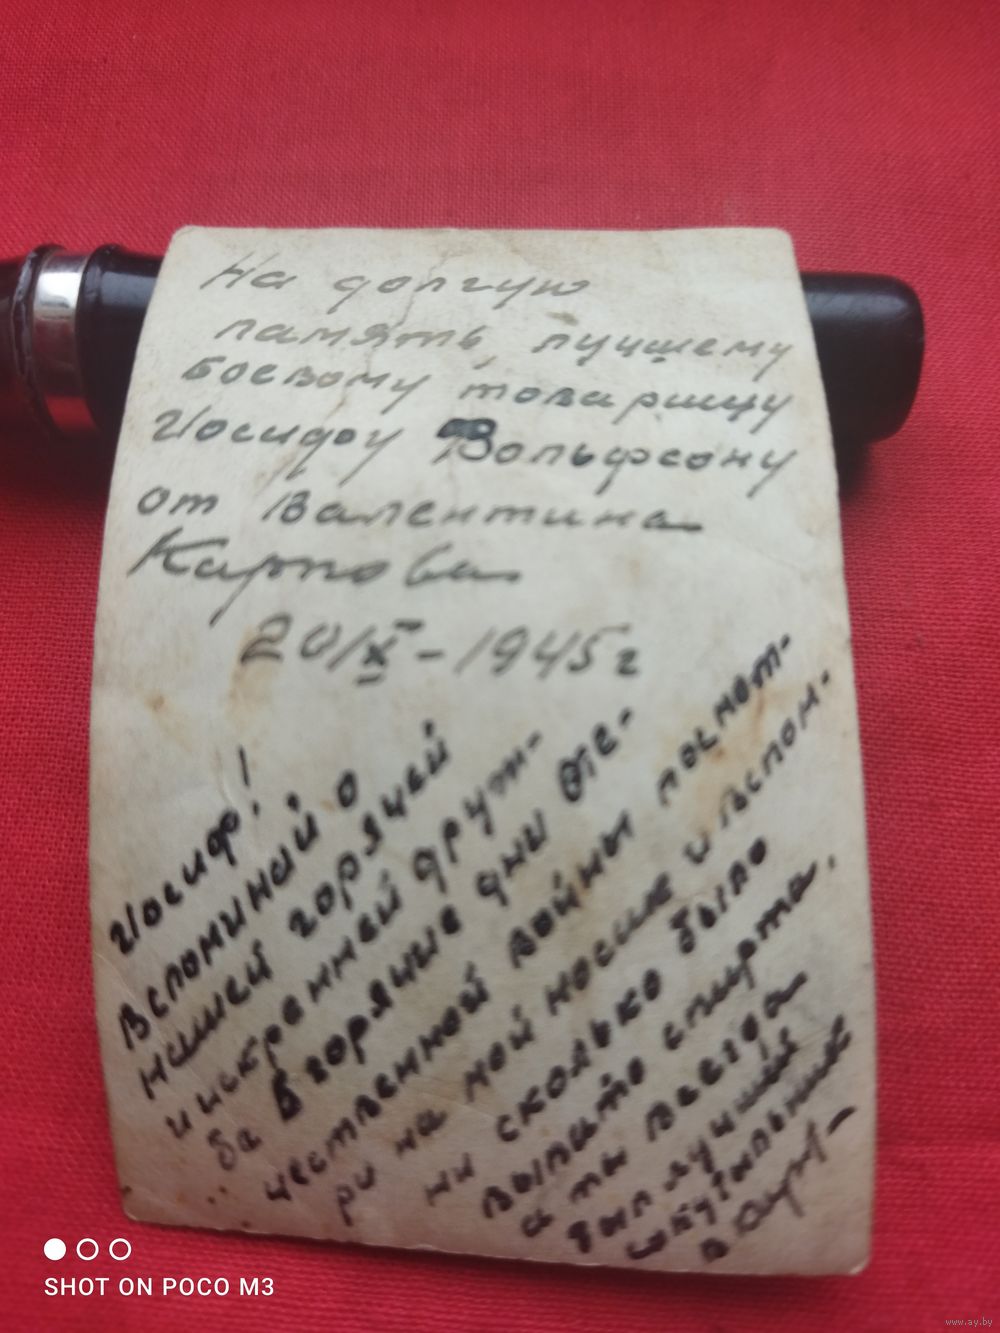 На долгую
память лучшему
боевому товарищу
Иосифу Вольфсону
от Валентина
Карпова
20/X-1945г
Иосиф!
Вспоминай о
нашей горячей
и искренней друж-
бе в горячие дни Оте-
чественной войны посмот-
ри на мой носик и вспом-
ни сколько было
выпито спирта.
а ты всегда
был лучший
в
SHOT ON POCO M3
www.ay.by